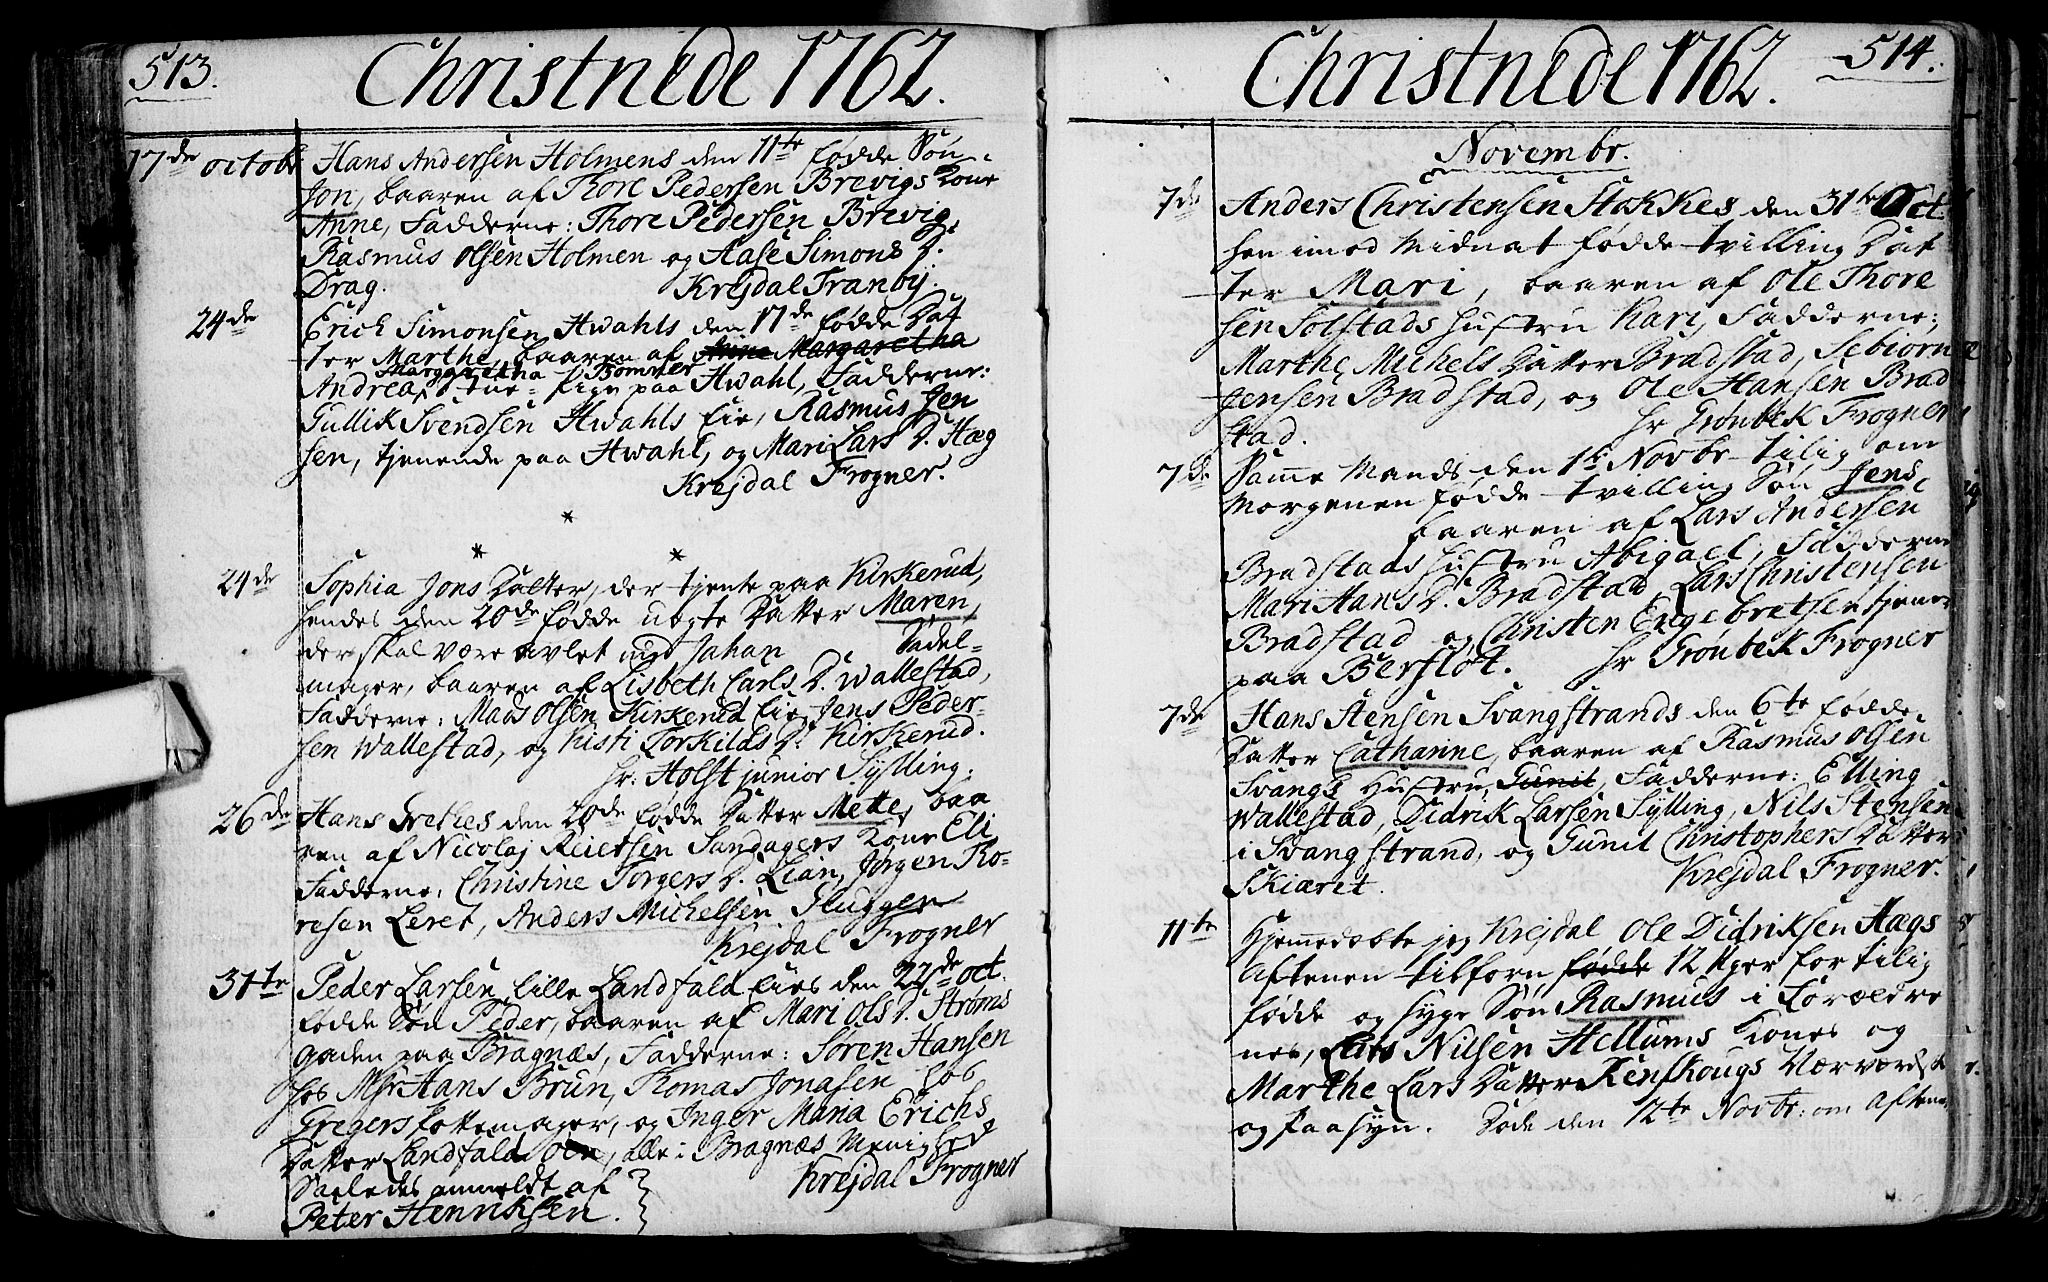 513.
Christnede 1762.
17de octobr Hans Andersen Holmens den 11te fødde Søn
Jon, baaren af Thore Pedersen Brevigs Kone
Anne, Fadderne: Thore Pedersen Brevig,
Rasmus Olsen Holmen og Aase Simons D.
Drag. Krejdal Tranby.
24de Erich Simonsen Hwahls den 17de fødde Dat
ter Marthe, baaren af Anne Margaretha
Margaretha Bommer
Andrea, Stue-Pige paa Hwahl, Fadderne:
Gullik Svendsen Hwahls Eie, Rasmus Jen
sen, tjenende paa Hwahl, og Mari Lars D. Hæg
Krejdal Frogner.
*
* *
24de Sophia Jons Datter, der tjente paa Kirkerud,
hendes den 20de fødde uægte Datter Maren,
der skal være avlet med Johan Sadel-
mager, baaren af Lisbeth Carls D. Wallestad,
Fadderne: Mads Olsen Kirkerud Eie, Jens Peder-
sen Wallestad, og Kisti Torkilds D. Kirkerud.
Hr. Holst junior Sylling.
26de Hans Grethes den 20de fødde Datter Mette, baa
ren af Nicolaj Reiersen Sandagers Kone Eli
Fadderne: Christine Torgers D. Lian, Jørgen Tho-
resen Leret, Anders Michelsen Slugger
Krejdal Frogner
31te Peder Larsen lille Landfald Eies den 22de oct.
fødde Søn Peder, baaren af Mari Ols D. Strøms
Gaden paa Bragnæs, Fadderne: Søren Hansen
hos Msr Hans Brun, Thomas Jonasen hos
Gregers Pottemager, og Inger Maria Erichs
Datter Landfald Øen, alle i Bragnæs Menighed
Saaledes anmeldt af Krejdal Frogner
Peter Henriksen.
514.
Christnede 1762.
Novembr.
7de Anders Christensen Stokkes den 31te Oct
hen imod Midnat fødde Tvilling Dat
ter Mari, baaren af Ole Thore
sen Solstads Hustru Kari, Fadderne:
Marthe Michels Datter Bradstad, Sebiørn
Jensen Bradstad, og Ole Hansen Brad
stad. Hr Grønbek Frogner
7de Samme Mands den 1te Novbr tilig om
Morgenen fødde Tvilling Søn Jens,
baaren af Lars Andersen
Bradstads Hustru Abigael, Fadderne
Mari Hans D. Bradstad Lars Christensen
Bradstad og Christen Engebretsen tjener
paa Bersløt. Hr Grønbek Frogner
7de Hans Stensen Svangstrands den 6te fødde
Datter Catharine, baaren af Rasmus Olsen
Svangs Hustru, Gunil, Fadderne: Elling
Wallestad, Didrik Larsen Sylling, Nils Stensen
i Svangstrand, og Gunil Christophers Datter
Skiæret. Krejdal Frogner.
11te Hjemmedøbte jeg Krejdal Ole Didriksen Hægs
Aftenen tilforn, fødde 12 Uger for tilig
fødde og syge Søn Rasmus i Forældre
nes, Lars Nilsen Hellums Kones og
Marthe Lars Datter Renskougs Nærværelse
og Paasyn. Døde den 12te Novbr: om Aftenen